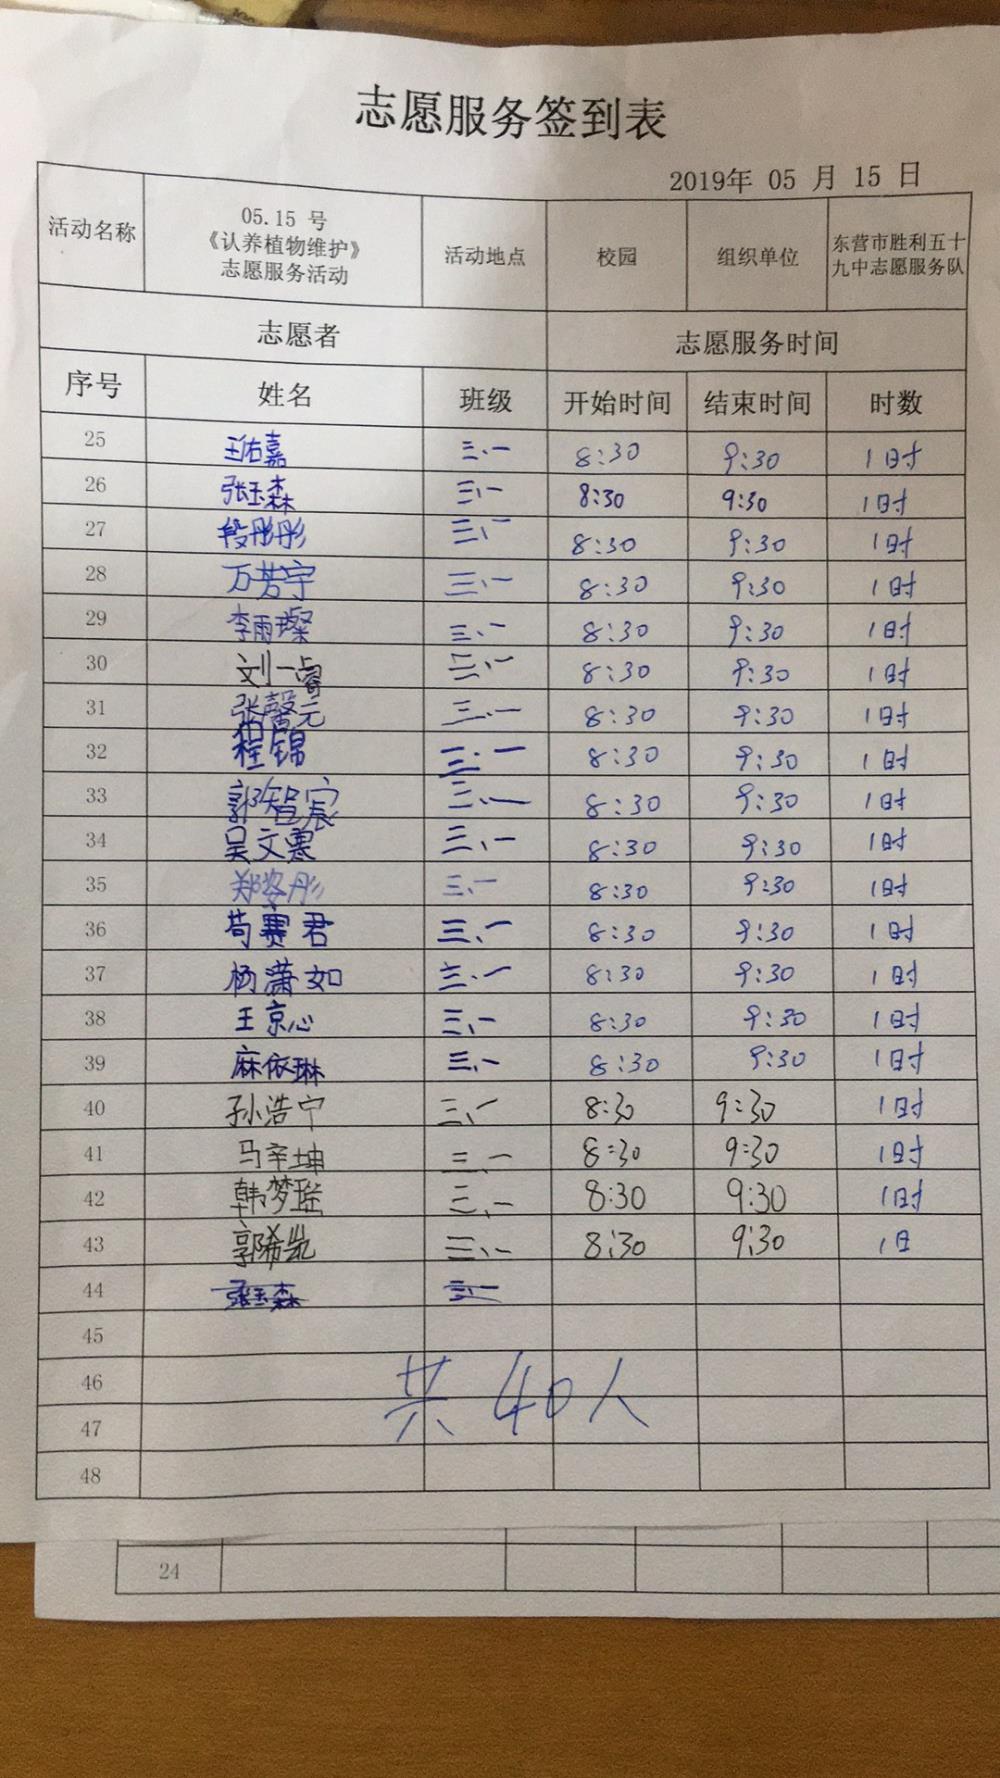 志愿服务签到表
2019年 05 月 15 日
活动名称 05.15 号《认养植物维护》志愿服务活动 活动地点 校园 组织单位 东营市胜利五十九中志愿服务队
志愿者 志愿服务时间
序号 姓名 班级 开始时间 结束时间 时数
25 王佑嘉 三、一 8:30 9:30 1时
26 张玉森 三、一 8:30 9:30 1时
27 段彤彤 三、一 8:30 9:30 1时
28 万芳宇 三、一 8:30 9:30 1时
29 李雨璨 三、一 8:30 9:30 1时
30 刘一睿 三、一 8:30 9:30 1时
31 张馨元 三、一 8:30 9:30 1时
32 程锦 三、一 8:30 9:30 1时
33 郭智宸 三、一 8:30 9:30 1时
34 吴文骞 三、一 8:30 9:30 1时
35 郑姿彤 三、一 8:30 9:30 1时
36 苟赛君 三、一 8:30 9:30 1时
37 杨潇如 三、一 8:30 9:30 1时
38 王京心 三、一 8:30 9:30 1时
39 麻依琳 三、一 8:30 9:30 1时
40 孙浩宁 三、一 8:30 9:30 1时
41 马辛坤 三、一 8:30 9:30 1时
42 韩梦瑶 三、一 8:30 9:30 1时
43 郭希凯 三、一 8:30 9:30 1日
44 张玉森 三、一
45
46
共 40人
47
48
24